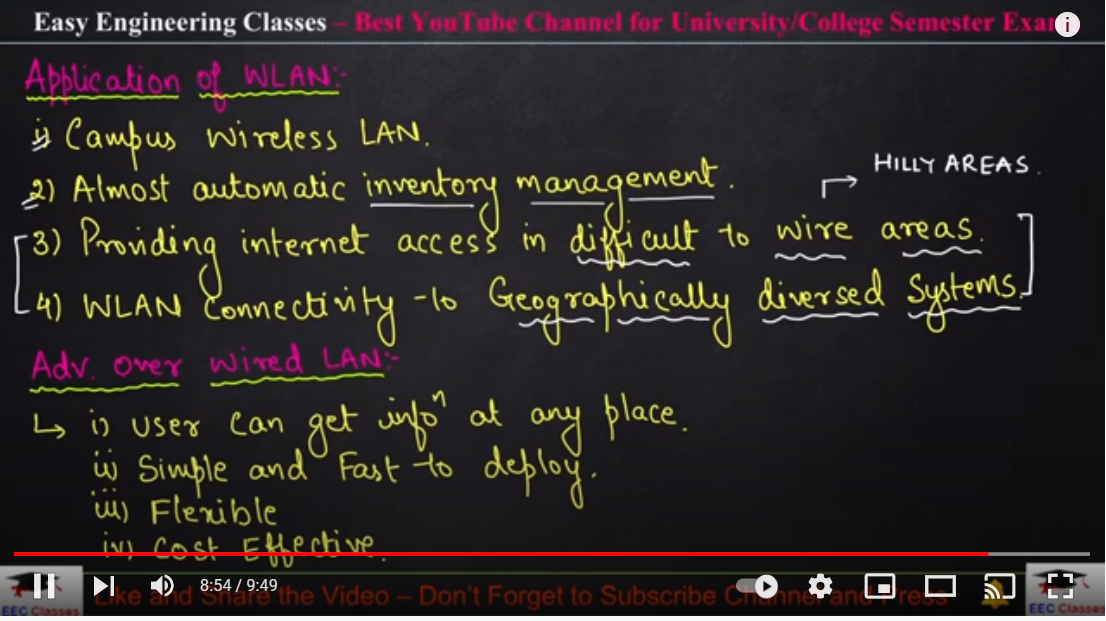 Easy Engineering Classes – Best YouTube Channel for University/College Semester Exa
i
Application of WLAN:-
1) Campus Wireless LAN.
2) Almost automatic inventory management.
HILLY AREAS.
3) Providing internet access in difficult to wire areas.
4) WLAN Connectivity to Geographically diversed Systems.
Adv. over wired LAN:-
↳ i) User can get infoⁿ at any place.
ii) Simple and Fast to deploy.
iii) Flexible
iv) Cost Effective.
8:54 / 9:49
EEC Classes
Like and Share the Video – Don't Forget to Subscribe Channel and Press
EEC Classes